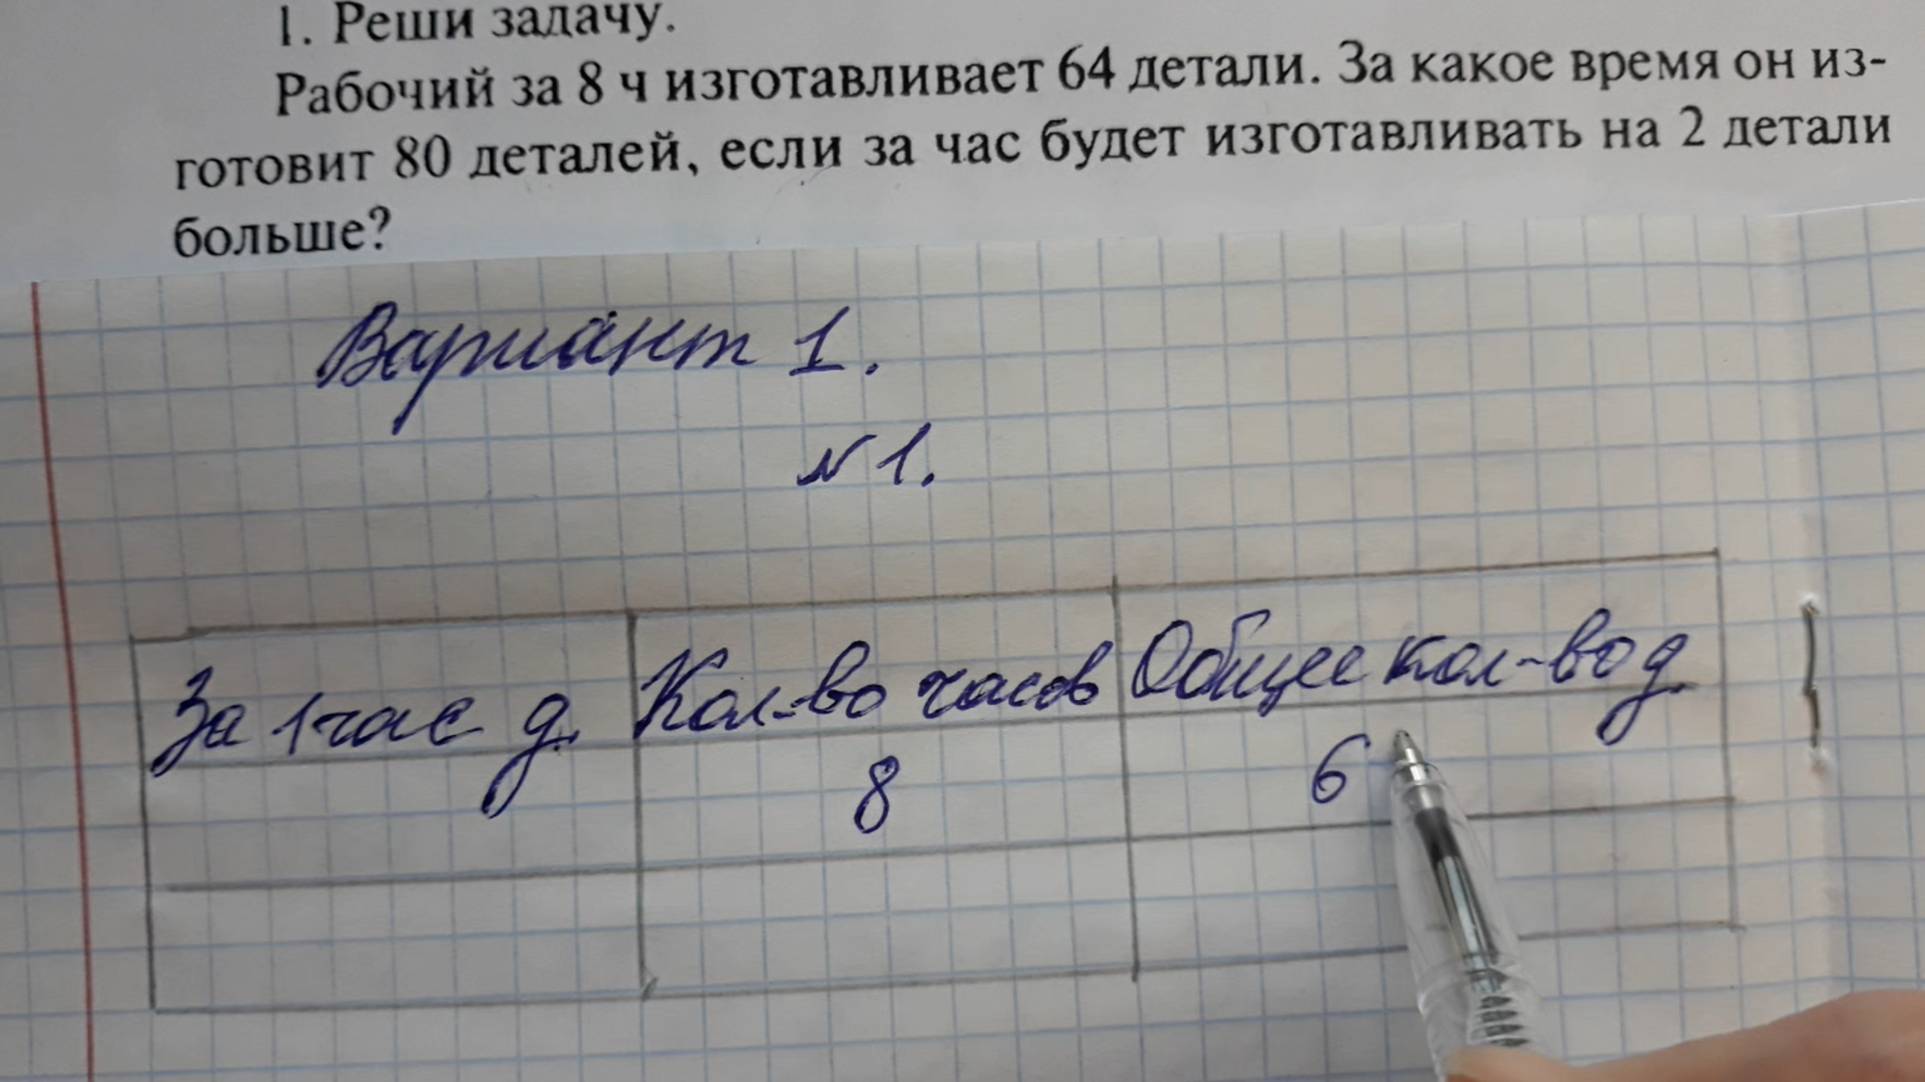 1. Реши задачу.
Рабочий за 8 ч изготавливает 64 детали. За какое время он из-
готовит 80 деталей, если за час будет изготавливать на 2 детали
больше?
Вариант 1.
№ 1.
За 1 час д. Кол-во часов Общее кол-во д.
8 6